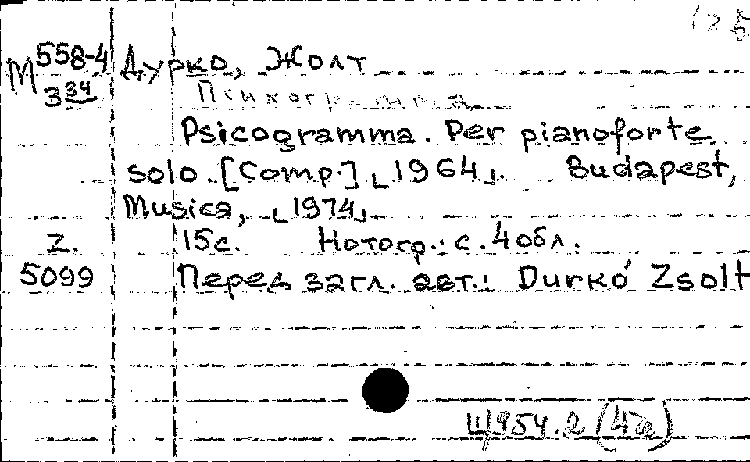 М 558-4
3 34
Дурко, Жолт
Психограмма
Psicogramma. Per pianoforte
solo. [Comp.] ⌞1964⌟. Budapest,
Musica, ⌞1974⌟.
Z. 15с. Нотогр.: с. 4 обл.
5099 Перед загл. авт.: Durkó Zsolt
Щ954.2 (4а)